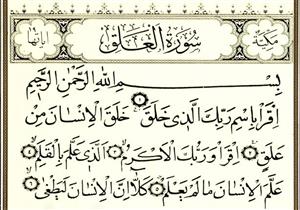 مكية سورة العلق آياتها
بِسْمِ اللهِ الرَّحْمٰنِ الرَّحِيْمِ
اِقْرَأْ بِاسْمِ رَبِّكَ الَّذِيْ خَلَقَ خَلَقَ الْاِنْسَانَ مِنْ
عَلَقٍ اِقْرَأْ وَرَبُّكَ الْاَكْرَمُ اَلَّذِيْ عَلَّمَ بِالْقَلَمِ
عَلَّمَ الْاِنْسَانَ مَا لَمْ يَعْلَمْ كَلَّا اِنَّ الْاِنْسَانَ لَيَطْغٰى